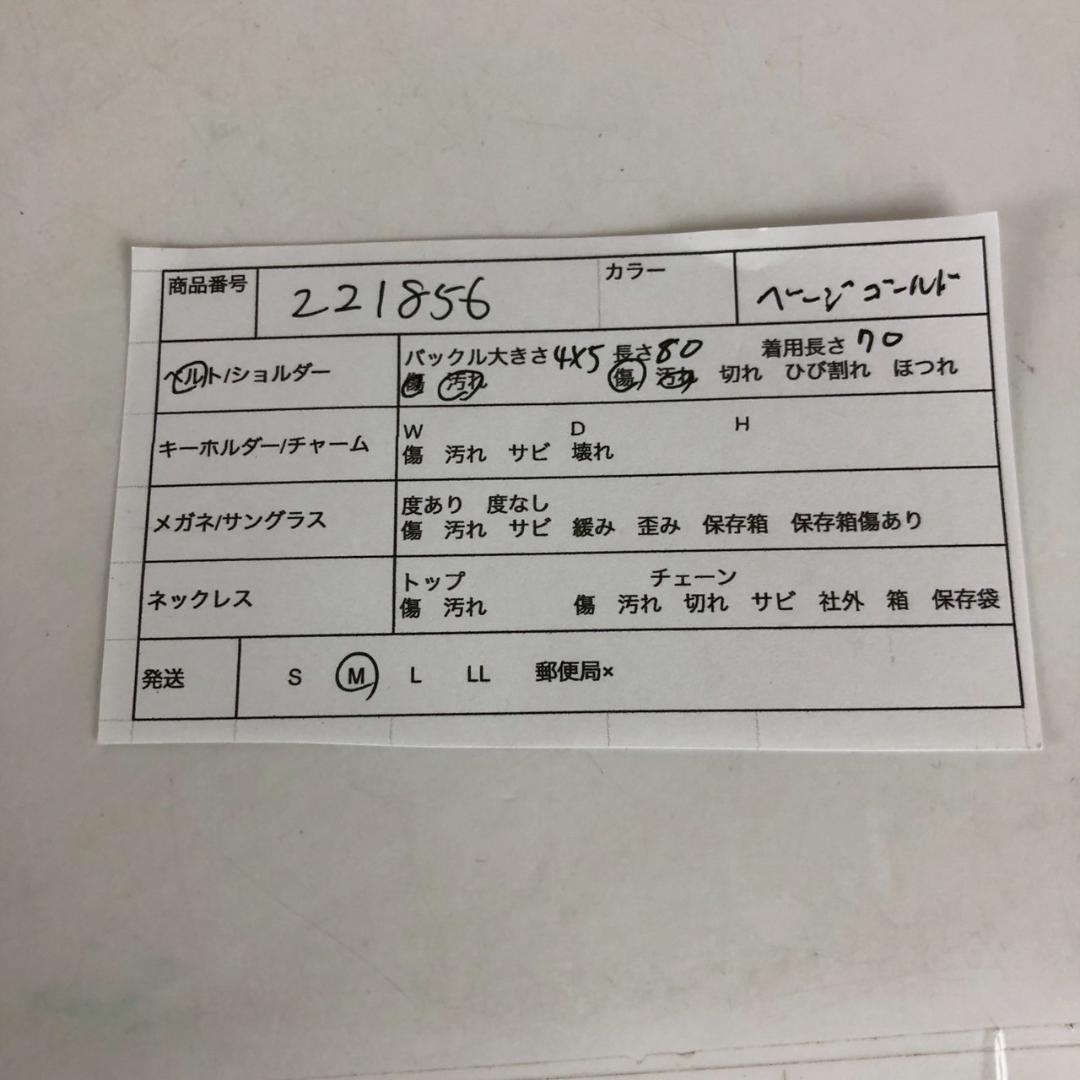 商品番号 221856 カラー ベージ ゴールド
バックル大きさ 4×5 長さ 80 着用長さ 70
ベルト/ショルダー
傷 汚れ 傷 汚れ 切れ ひび割れ ほつれ
W D H
キーホルダー/チャーム
傷 汚れ サビ 壊れ
度あり 度なし
メガネ/サングラス
傷 汚れ サビ 緩み 歪み 保存箱 保存箱傷あり
トップ チェーン
ネックレス
傷 汚れ 傷 汚れ 切れ サビ 社外 箱 保存袋
発送 S M L LL 郵便局×